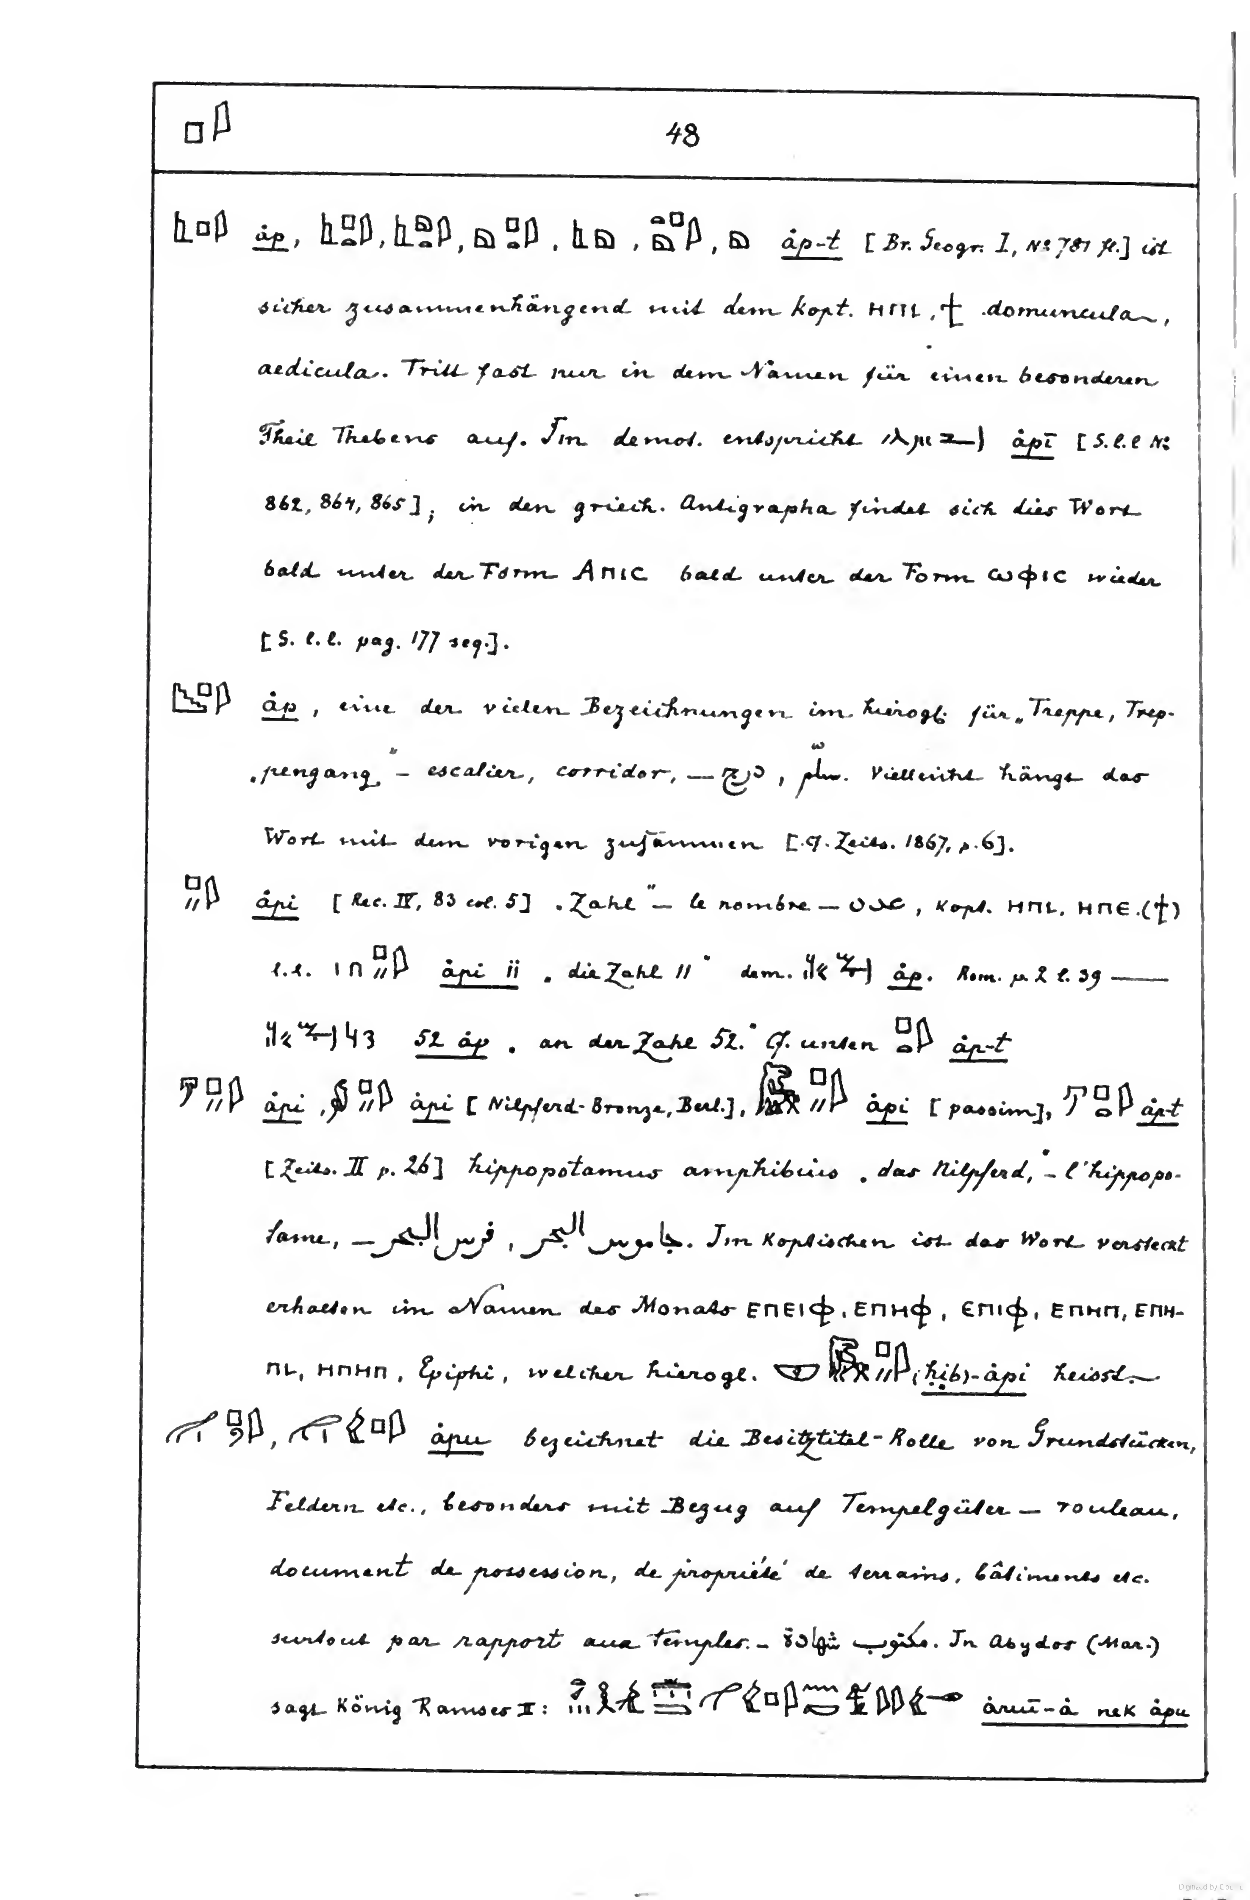 48
åp, åp-t [Br. Geogr. I, No 781 fl.] ist
sicher zusammenhängend mit dem kopt. ⲎⲠⲒ, ϯ domuncula,
aedicula. Tritt fast nur in dem Namen für einen besonderen
Theil Thebens auf. Im demot. entspricht åpī [S. l. l No
862, 864, 865]; in den griech. Antigrapha findet sich dies Wort
bald unter der Form ΑΠΙC bald unter der Form ωφιc wieder
[S. l. l. pag. 177 seq.].
åp, eine der vielen Bezeichnungen im hierogl. für „Treppe, Trep-
„pengang" – escalier, corridor, – درج, سلّم. Vielleicht hängt das
Wort mit dem vorigen zusammen [cf. Zeits. 1867, p. 6].
åpi [Rec. IV, 83 col. 5] „Zahl" – le nombre – عدد, Kopt. ⲎⲠⲒ, ⲎⲠⲈ (ϯ)
l.l. åpi ii „die Zahl 11" dem. åp. Rom. p. 2 l. 39 –
52 åp „an der Zahl 52." Cf. unten åp-t
åpi, åpi [Nilpferd-Bronze, Berl.], åpi [passim], åp-t
[Zeits. II p. 26] hippopotamus amphibius „das Nilpferd," – l'hippopo-
tame, – فرس البحر, جاموس البحر. Im Koptischen ist das Wort versteckt
erhalten im Namen des Monats ⲈⲠⲈⲒⲪ, ⲈⲠⲎⲪ, ⲈⲠⲒⲪ, ⲈⲠⲎⲠ, ⲈⲠⲎ-
ⲠⲒ, ⲎⲠⲎⲠ, Epiphi, welcher hierogl. (ḥib)-åpi heisst.
åpu bezeichnet die Besitztitel-Rolle von Grundstücken,
Feldern etc., besonders mit Bezug auf Tempelgüter – rouleau,
document de possession, de propriété de terrains, bâtiments etc.
surtout par rapport aux temples. – مكتوب شهادة. In Abydos (Mar.)
sagt König Ramses II: åruī-å nek åpu